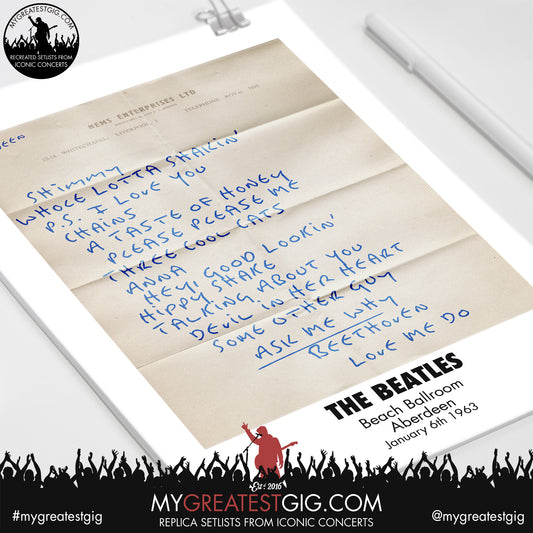 MYGREATESTGIG.COM
RECREATED SETLISTS FROM
ICONIC CONCERTS
NEMS ENTERPRISES LTD
12-14 WHITECHAPEL, LIVERPOOL, 1
TELEPHONE
SHIMMY
WHOLE LOTTA SHAKIN'
P.S. I LOVE YOU
CHAINS
A TASTE OF HONEY
PLEASE PLEASE ME
THREE COOL CATS
ANNA
HEY, GOOD LOOKIN'
HIPPY SHAKE
TALKING ABOUT YOU
DEVIL IN HER HEART
SOME OTHER GUY
ASK ME WHY
BEETHOVEN
LOVE ME DO
THE BEATLES
Beach Ballroom
Aberdeen
January 6th 1963
Est 2016
MYGREATESTGIG.COM
#mygreatestgig
REPLICA SETLISTS FROM ICONIC CONCERTS
@mygreatestgig